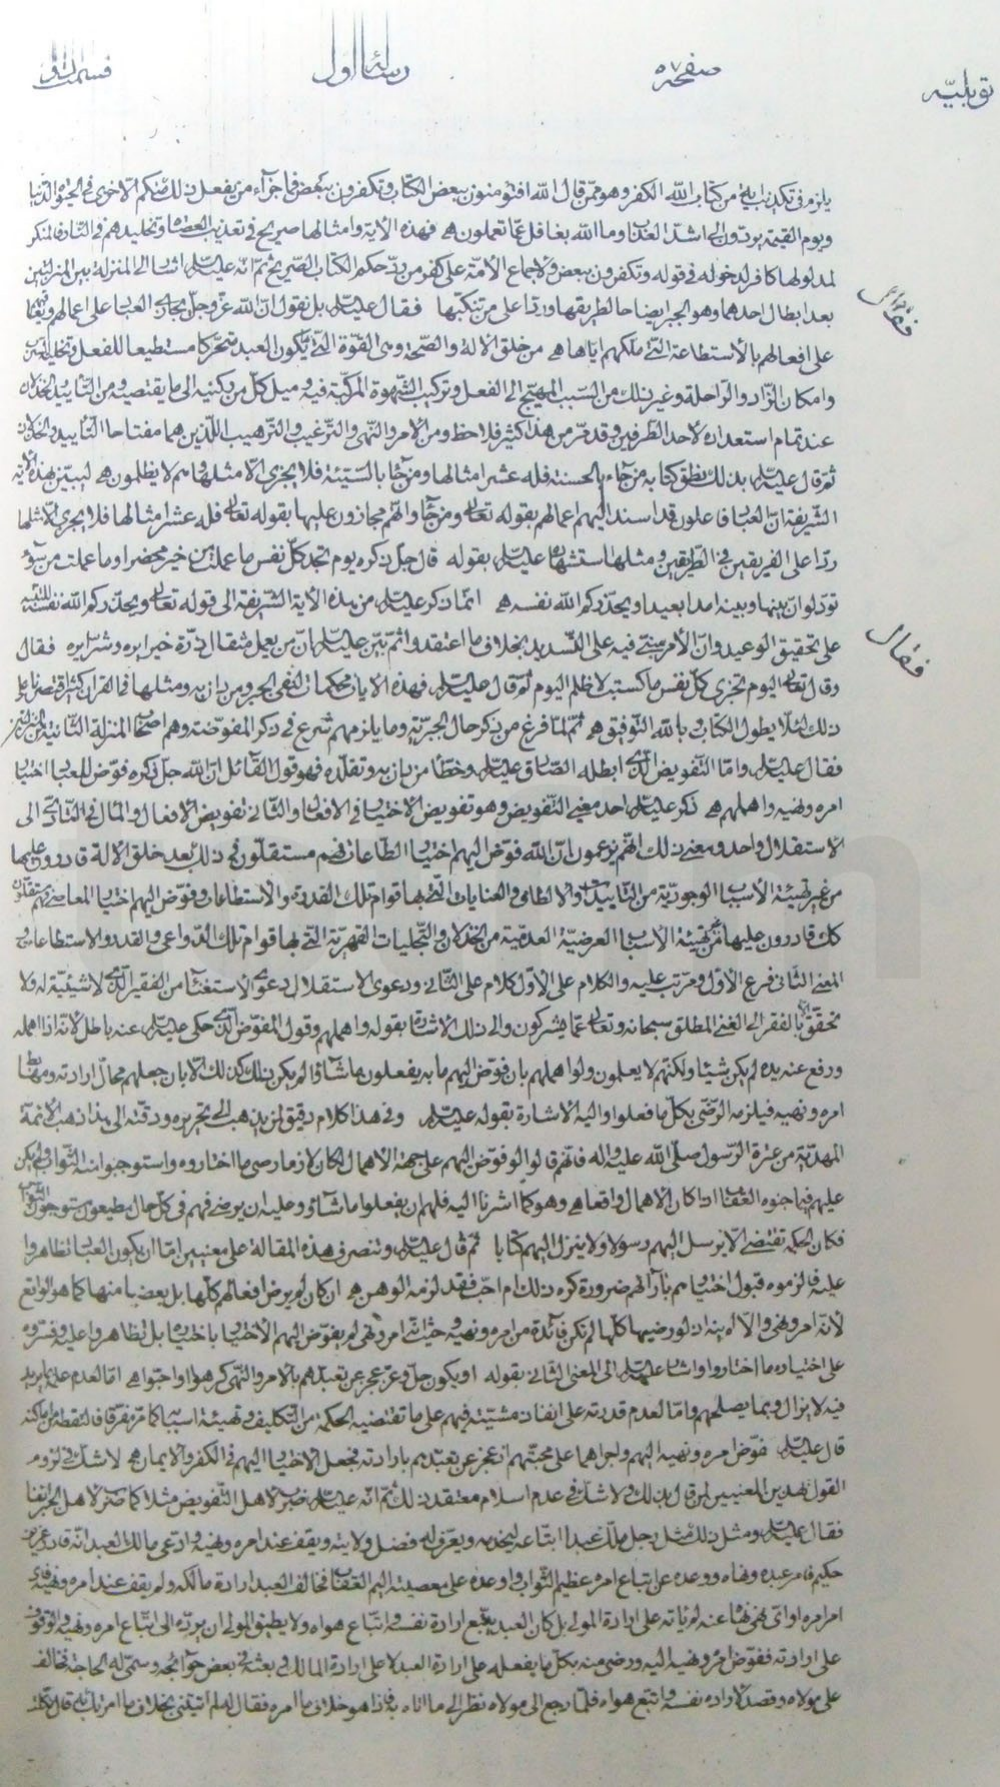 توبلیه صفحه ٥٧ رسالهٔ اول
یلزم فی تکذیب آیة من کتاب الله الکفر وهو ممن قال الله افتؤمنون ببعض الکتاب وتکفرون ببعض فما جزآء من یفعل ذلک منکم الا خزی فی الحیوة الدنیا
ویوم القیمة یردون الی اشد العذاب وما الله بغافل عما تعملون فهذه الآیة وامثالها صریح فی تعذیب العصاة وتخلیدهم فی النار فالمنکر
لمدلولها کافر لدخوله فی قوله وتکفرون ببعض ولاجماع الامة علی کفر من رد حکم الکتاب الصریح ثم انه علیه السلم اشار الی المنزلة بین المنزلتین
بعد ابطال احدهما وهو الجبر ایضاحا لطریقها وردا علی من تنکبها فقال علیه السلم بل نقول ان الله عز وجل یجازی العباد علی اعمالهم ویعاقبهم
علی افعالهم بالاستطاعة التی ملکهم ایاها هی من خلق الالة والصحة وهی القوة التی یکون العبد متحرکا مستطیعا للفعل وتخلیة السرب
وامکان الزاد والراحلة وغیر ذلک من السبب المهیج الی الفعل وترکیب الشهوة المرکبة فیه ومیل کل من رکنیه الی ما یقتضیه من التأیید والخذلان
عند تمام استعداده لاحد الطرفین وقد مر من هذا کثیر فلاحظ ومن الامر والنهی والترغیب والترهیب اللذین هما مفتاحا التأیید والخذلان
ثم قال علیه السلم بذلک نطق کتابه من جاء بالحسنة فله عشر امثالها ومن جاء بالسیئة فلا یجزی الا مثلها وهم لا یظلمون لیبین بهذه الآیة
الشریفة ان العباد فاعلون قد اسند الیهم اعمالهم بقوله تعالی ومن جاء وانهم مجازون علیها بقوله تعالی فله عشر امثالها فلا یجزی الا مثلها
ردا علی الفریقین فی الطریقین ومثلها استشهاده علیه السلم بقوله قال جل ذکره یوم تجد کل نفس ما عملت من خیر محضرا وما عملت من سوء
تود لو ان بینها وبینه امدا بعیدا ویحذرکم الله نفسه انما ذکر علیه السلم من هذه الآیة الشریفة الی قوله تعالی ویحذرکم الله نفسه للتنبیه
علی تحقیق الوعید وان الامر مبنی فیه علی التسدید بخلاف ما اعتقدوا ثم بین علیه السلم ان من یعمل مثقال ذرة خیرا یره وشرا یره فقال
وقال تعالی الیوم تجزی کل نفس ما کسبت لا ظلم الیوم ثم قال علیه السلم فهذه الآیات محکمات لنفی الجبر ومن دان به ومثلها فی القران کثیر اقتصرنا علی
ذلک لئلا یطول الکتاب وبالله التوفیق ثم لما فرغ من ذکر حال الجبریة وما یلزمهم شرع فی ذکر المفوضة وهم اصحاب المنزلة الثانیة
فقال علیه السلم واما التفویض الذی ابطله الصادق علیه السلم وخطأ من دان به وتقلده فهو قول القائل ان الله جل ذکره فوض للعباد اختیار
امره ونهیه واهملهم ذکر علیه السلم احد معنیی التفویض وهو تفویض الاختیار فی الافعال والثانی تفویض الافعال والمال فی التأدی الی
الاستقلال واحد ومعنی ذلک انهم یزعمون ان الله فوض الیهم اختیار الطاعات فهم مستقلون فی ذلک بعد خلق الالة قادرون علیها
من غیر تهیئة الاسباب الوجودیة من التأییدات والالطاف والعنایات التی بها قوام تلک القدرة والاستطاعات وفوض الیهم اختیار المعاصی فهم مستقلون
کک قادرون علیها من غیر تهیئة الاسباب العرضیة العدمیة من الخذلان والتخلیات القهریة التی بها قوام تلک الدواعی والقدر والاستطاعات و
المعنی الثانی فرع الاول ومرتب علیه والکلام علی الاول کلام علی الثانی ودعوی الاستقلال دعوی الاستغناء من الفقیر الذی لا شیئیة له ولا
تحقق الا بالفقر الی الغنی المطلق سبحانه وتعالی عما یشرکون والی ذلک الاشارة بقوله واهملهم وقول المفوض الذی حکی علیه السلم عنه باطل لانه اذا اهمله
ورفع عنه یده لم یکن شیئا ولکنهم لا یعلمون ولو اهملهم بان فوض الیهم ما به یفعلون ما شاؤا لم یکن ذلک کذلک الا بان جعلهم محال ارادته ومظاهر
امره ونهیه فیلزمه الرضی بکل ما فعلوا والیه الاشارة بقوله علیه السلم وفی هذا کلام دقیق لمن یذهب الی تحریره ودقته الی هذا ذهب الائمة
المهدیة من عترة الرسول صلی الله علیه واله فانهم قالوا لو فوض الیهم علی جهة الاهمال لکان لازما رضی ما اختاروه واستوجبوا منه الثواب ولم یکن
علیهم فیما جنوه العقاب اذا کان الاهمال واقعا وهو کما اشرنا الیه فلهم ان یفعلوا ما شاؤا وعلیه ان یرضی فهم فی کل حال مطیعون مستوجبون الثواب
فکان الحکمة تقتضی الا یرسل الیهم رسولا ولا ینزل الیهم کتابا ثم قال علیه السلم وتنصرف هذه المقالة علی معنیین اما ان یکون العباد تظاهروا
علیه فالزموه قبول اختیارهم بآرائهم ضرورة کره ذلک ام احب فقد لزمه الوهن ان کان لم یرض افعالهم کلها بل بعضا منها کما هو الواقع
لانه امر ونهی والا اذ لو رضیها کلها لم تکن فائدة من امره ونهیه وحیث امر ونهی لم یفوض الیهم الاختیار باختیاره بل تظاهروا علیه وقسروه
علی اختیاره ما اختاروا واشار علیه السلم الی المعنی الثانی بقوله او یکون جل وعز عجز عن تعبدهم بالامر والنهی کرهوا او احبوا اما لعدم علمه بما یرید
فیه لا یزال وبما یصلحهم واما لعدم قدرته علی انفاذ مشیته فیهم علی ما تقتضیه الحکمة من التکلیف وتهیئة اسبابها کما مر
قال علیه السلم فوض امره ونهیه الیهم واجراهما علی محبتهم اذ عجز عن تعبدهم بارادته فجعل الاختیار الیهم فی الکفر والایمان لا شک فی لزوم
القول بهذین المعنیین لمن قال بذلک ولا شک فی عدم اسلام معتقد ذلک ثم انه علیه السلم ضرب لاهل التفویض مثلا کما ضرب لاهل الجبر انفا
فقال علیه السلم ومثل ذلک مثل رجل ملک عبدا ابتاعه لیخدمه ویعرف له فضل ولایته ویقف عند امره ونهیه وادعی مالک العبد انه قادر عزیز
حکیم فامر عبده ونهاه ووعده علی اتباع امره عظیم الثواب واوعده علی معصیته الیم العقاب فخالف العبد ارادة مالکه ولم یقف عند امره ونهیه فای
امر امره او ای نهی نهاه عنه لم یأته علی ارادة المولی بل کان العبد یتبع ارادة نفسه واتباع هواه ولا یطیق المولی ان یرده الی اتباع امره ونهیه والوقوف
علی ارادته ففوض امره ونهیه الیه ورضی منه بکل ما یفعله علی ارادة العبد لا علی ارادة المالک وبعثه فی بعض حوائجه وسمی له الحاجة فخالف
علی مولاه وقصد لارادة نفسه واتبع هواه فلما رجع الی مولاه نظر الی ما اتاه به فاذا هو خلاف ما امره فقال له لم اتیتنی بخلاف ما امرتک به قال
فقال